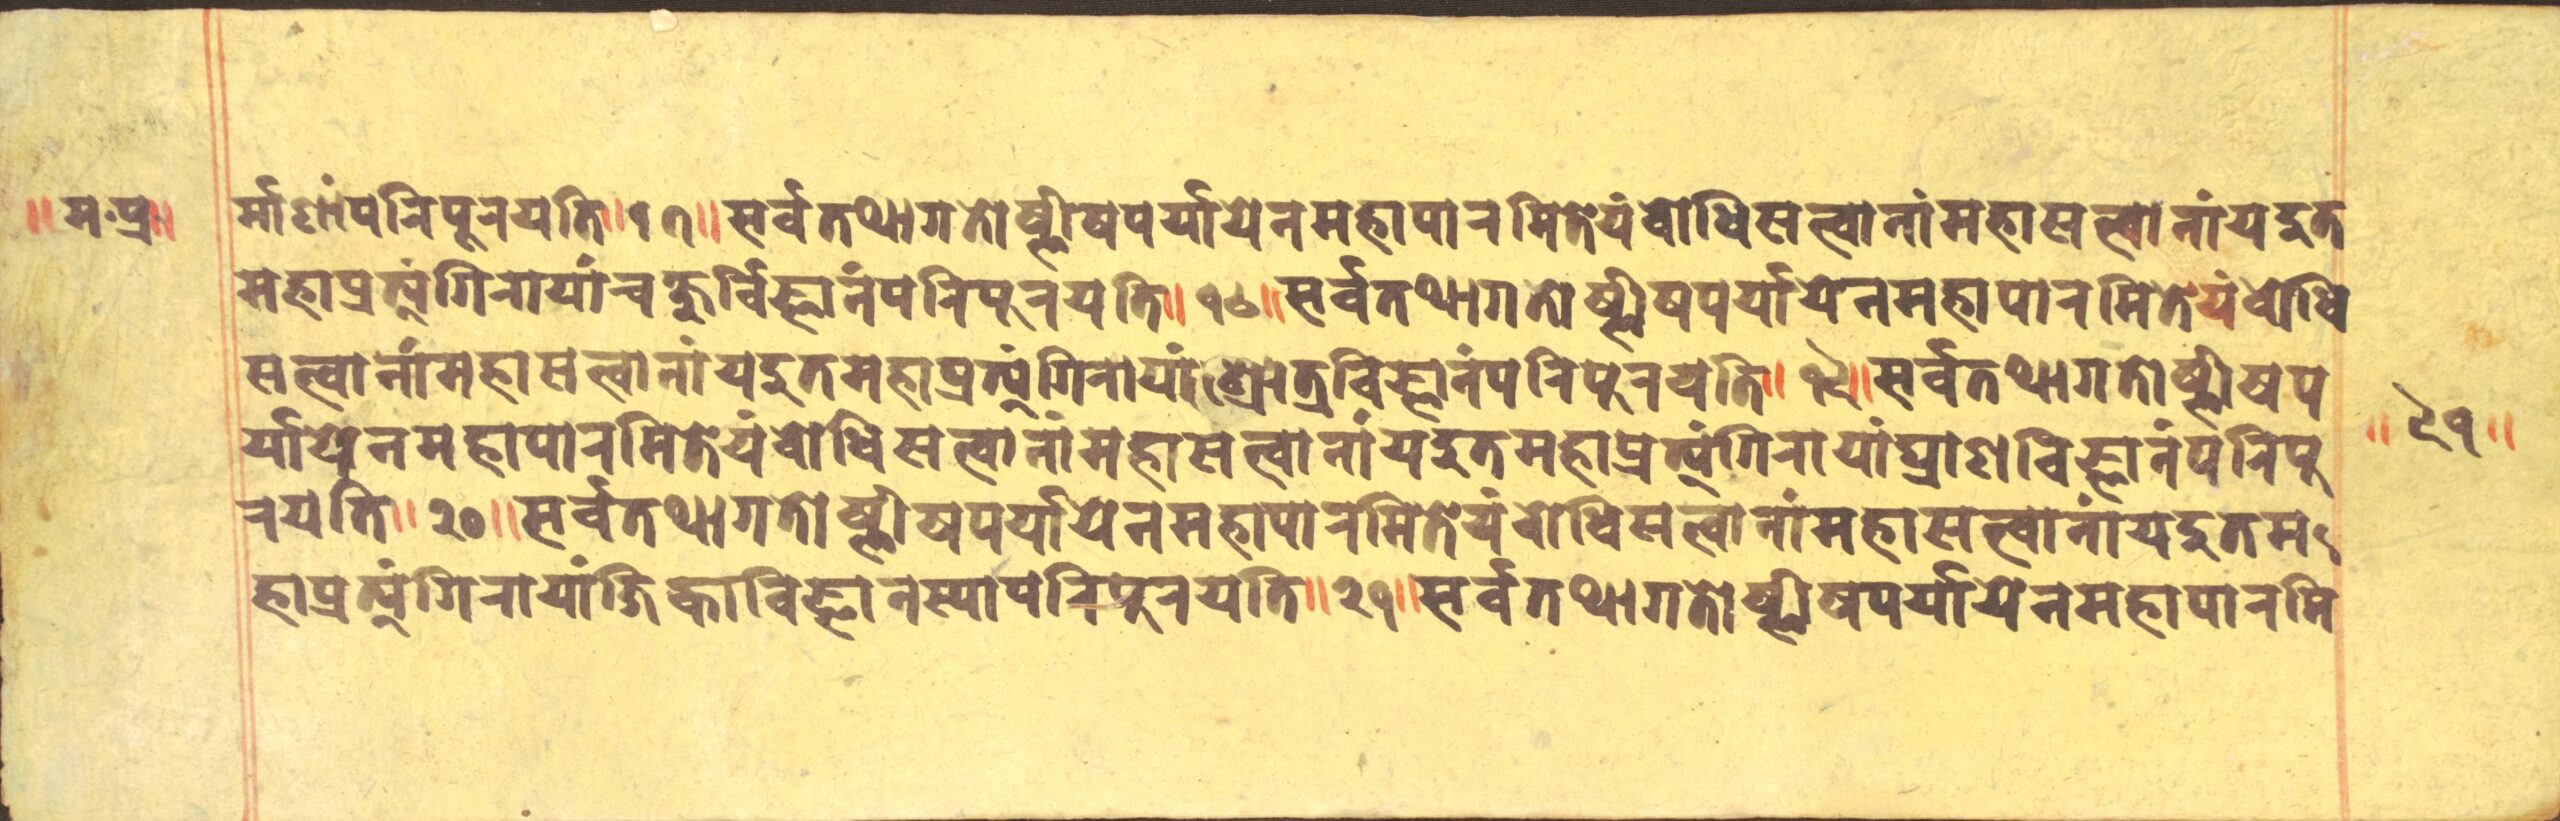 ॥ म॰प्र॰॥
र्माणांपरिपूरयति॥१७॥सर्वतथागतोष्णीषपर्यायेनमहापारमितेयंबोधिसत्वानांमहासत्वानांयदुत
महाप्रत्यंगिरायांचक्षुर्विज्ञानंपरिपूरयति॥१८॥सर्वतथागतोष्णीषपर्यायेनमहापारमितेयंबोधि
सत्वानांमहासत्वानांयदुतमहाप्रत्यंगिरायांश्रोत्रविज्ञानंपरिपूरयति॥१९॥सर्वतथागतोष्णीषप
र्यायेनमहापारमितेयंबोधिसत्वानांमहासत्वानांयदुतमहाप्रत्यंगिरायांघ्राणविज्ञानंपरिपू
॥९१॥
रयति॥२०॥सर्वतथागतोष्णीषपर्यायेनमहापारमितेयंबोधिसत्वानांमहासत्वानांयदुतम
हाप्रत्यंगिरायांजिह्वाविज्ञानस्यापरिपूरयति॥२१॥सर्वतथागतोष्णीषपर्यायेनमहापारमि